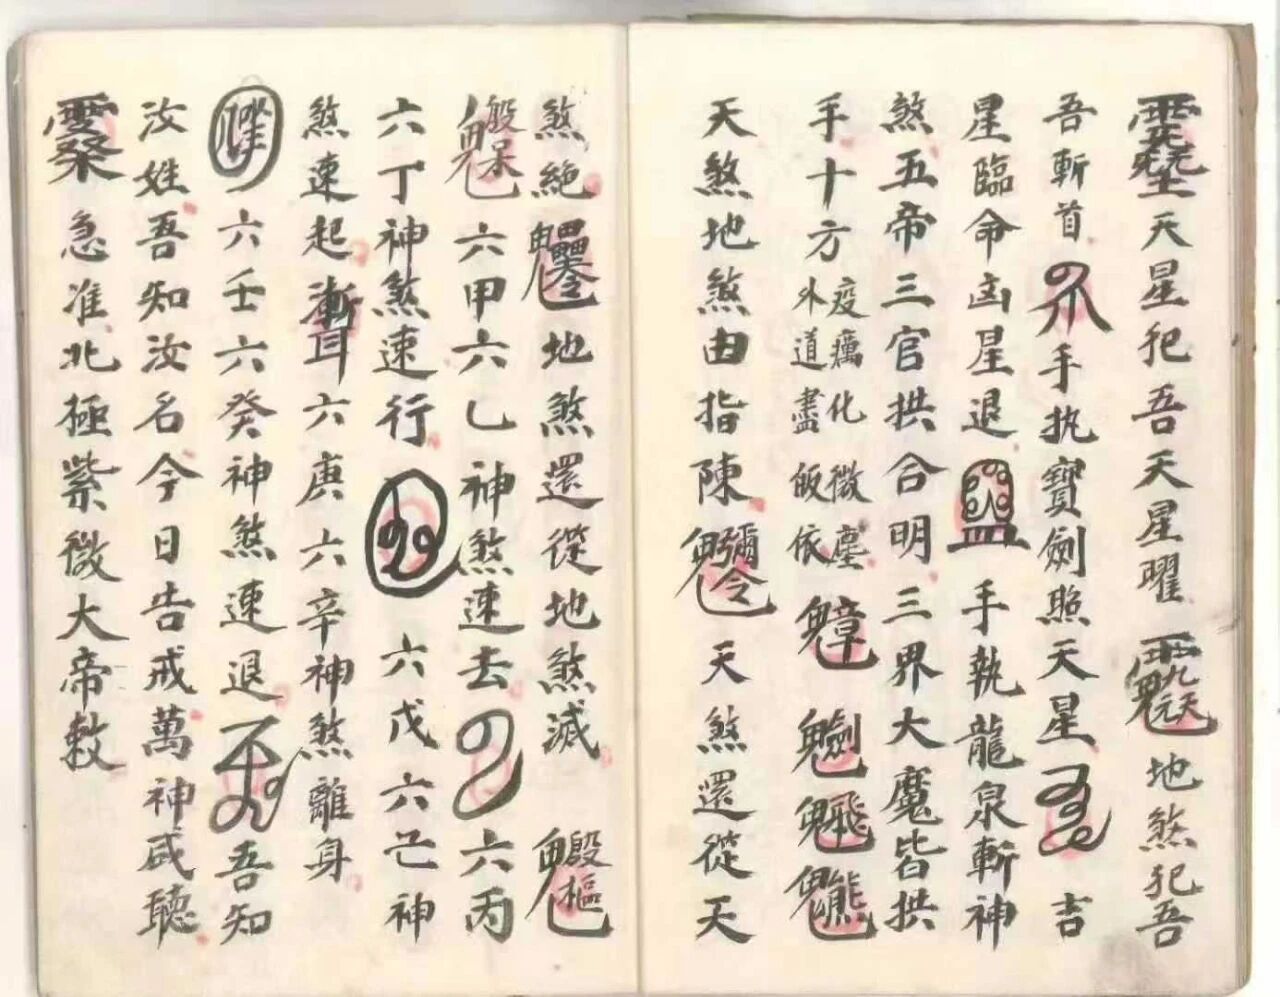 天星犯吾天星曜地煞犯吾
吾斬首手执寶劍照天星吉
星臨命凶星退手執龍泉斬神
煞五帝三官拱合明三界大魔皆拱
手十方疫癘化微塵外道盡皈依
天煞地煞由指陳天煞還從天
煞絕地煞還從地煞滅
六甲六乙神煞速去六丙
六丁神煞速行六戊六己神
煞速起六庚六辛神煞離身
六壬六癸神煞速退吾知
汝姓吾知汝名今日告戒萬神咸聽
急准北極紫微大帝敕